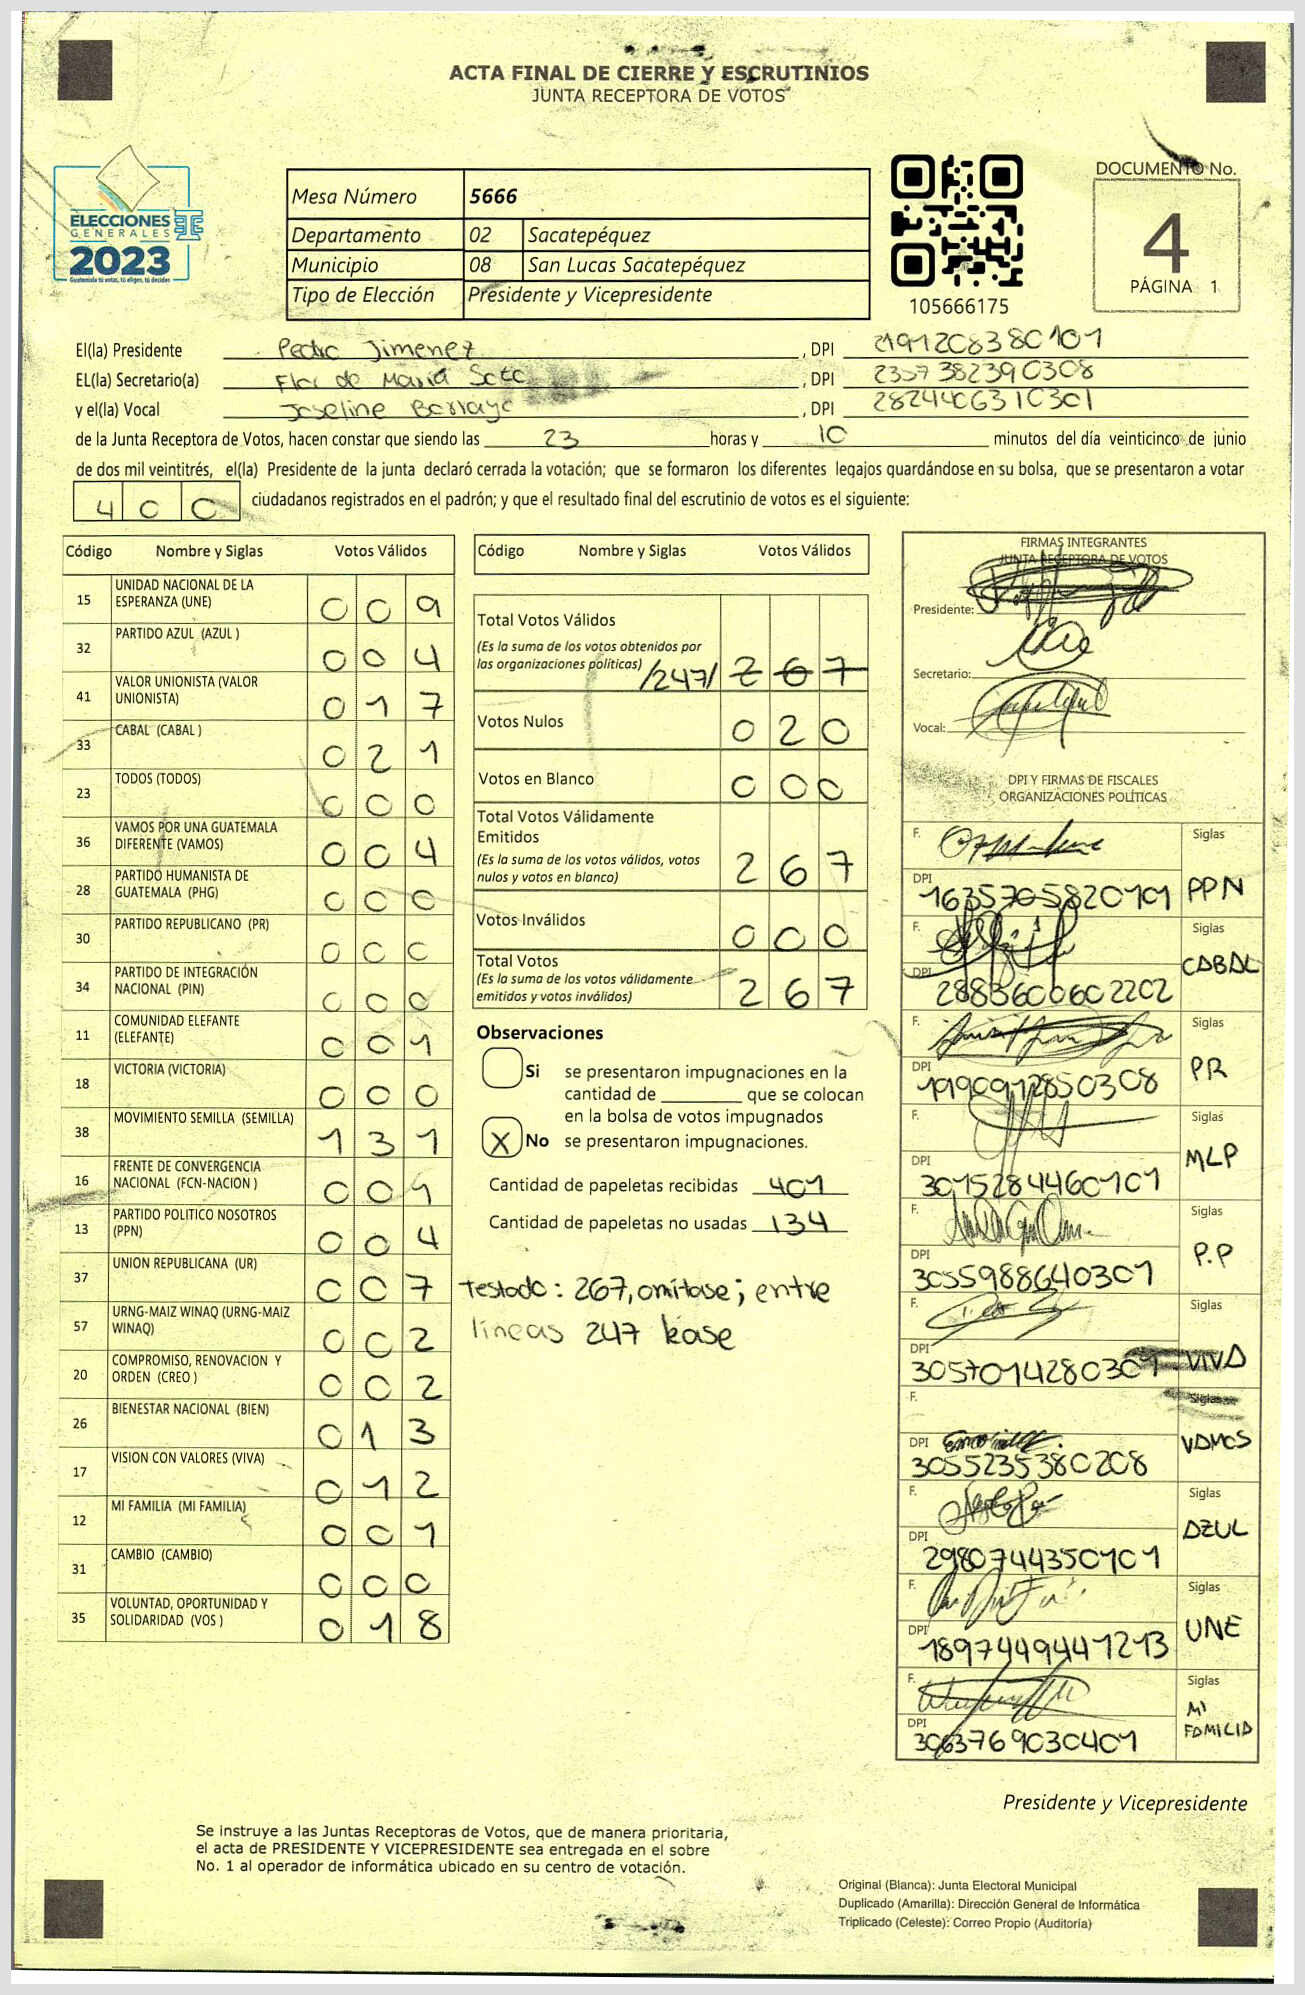 ACTA FINAL DE CIERRE Y ESCRUTINIOS
JUNTA RECEPTORA DE VOTOS
ELECCIONES
GENERALES
2023
Guatemala tú votas, tú eliges, tú decides
Mesa Número 5666
Departamento 02 Sacatepéquez
Municipio 08 San Lucas Sacatepéquez
Tipo de Elección Presidente y Vicepresidente
105666175
DOCUMENTO No.
4
PÁGINA 1
El(la) Presidente Pedro Jimenez, DPI 2191208380101
EL(la) Secretario(a) Flor de Maria Soto, DPI 2357382390308
y el(la) Vocal Joseline Borrayo, DPI 2824406310301
de la Junta Receptora de Votos, hacen constar que siendo las 23 horas y 10 minutos del día veinticinco de junio
de dos mil veintitrés, el(la) Presidente de la junta declaró cerrada la votación; que se formaron los diferentes legajos guardándose en su bolsa, que se presentaron a votar
400 ciudadanos registrados en el padrón; y que el resultado final del escrutinio de votos es el siguiente:
Código Nombre y Siglas Votos Válidos
15 UNIDAD NACIONAL DE LA
ESPERANZA (UNE) 009
32 PARTIDO AZUL (AZUL ) 004
41 VALOR UNIONISTA (VALOR
UNIONISTA) 017
33 CABAL (CABAL ) 021
23 TODOS (TODOS) 000
36 VAMOS POR UNA GUATEMALA
DIFERENTE (VAMOS) 004
28 PARTIDO HUMANISTA DE
GUATEMALA (PHG) 000
30 PARTIDO REPUBLICANO (PR) 000
34 PARTIDO DE INTEGRACIÓN
NACIONAL (PIN) 000
11 COMUNIDAD ELEFANTE
(ELEFANTE) 001
18 VICTORIA (VICTORIA) 000
38 MOVIMIENTO SEMILLA (SEMILLA) 131
16 FRENTE DE CONVERGENCIA
NACIONAL (FCN-NACION ) 001
13 PARTIDO POLITICO NOSOTROS
(PPN) 004
37 UNION REPUBLICANA (UR) 007
57 URNG-MAIZ WINAQ (URNG-MAIZ
WINAQ) 002
20 COMPROMISO, RENOVACION Y
ORDEN (CREO ) 002
26 BIENESTAR NACIONAL (BIEN) 013
17 VISION CON VALORES (VIVA) 012
12 MI FAMILIA (MI FAMILIA) 001
31 CAMBIO (CAMBIO) 000
35 VOLUNTAD, OPORTUNIDAD Y
SOLIDARIDAD (VOS ) 018
Código Nombre y Siglas Votos Válidos
Total Votos Válidos
(Es la suma de los votos obtenidos por
las organizaciones políticas) /247/ 267
Votos Nulos 020
Votos en Blanco 000
Total Votos Válidamente
Emitidos
(Es la suma de los votos válidos, votos
nulos y votos en blanco) 267
Votos Inválidos 000
Total Votos
(Es la suma de los votos válidamente
emitidos y votos inválidos) 267
Observaciones
Si se presentaron impugnaciones en la
cantidad de ________ que se colocan
en la bolsa de votos impugnados
X No se presentaron impugnaciones.
Cantidad de papeletas recibidas 401
Cantidad de papeletas no usadas 134
Testado: 267, omitase; entre
lineas 247 léase
FIRMAS INTEGRANTES
JUNTA RECEPTORA DE VOTOS
Presidente:
Secretario:
Vocal:
DPI Y FIRMAS DE FISCALES
ORGANIZACIONES POLÍTICAS
F. Siglas
DPI 1635705820101 PPN
F. Siglas
DPI 2883600602202 CABAL
F. Siglas
DPI 1990912850308 PR
F. Siglas
DPI 3015284460101 MLP
F. Siglas
DPI 3055988640301 P.P
F.
DPI 3057014280301 VIVA
F. Siglas
DPI 3055235380208 VAMOS
F. Siglas
DPI 2980744350101 AZUL
F. Siglas
DPI 1897449441213 UNE
F. Siglas
DPI 3063769030401 MI
FAMILIA
Presidente y Vicepresidente
Se instruye a las Juntas Receptoras de Votos, que de manera prioritaria,
el acta de PRESIDENTE Y VICEPRESIDENTE sea entregada en el sobre
No. 1 al operador de informática ubicado en su centro de votación.
Original (Blanca): Junta Electoral Municipal
Duplicado (Amarilla): Dirección General de Informática
Triplicado (Celeste): Correo Propio (Auditoría)